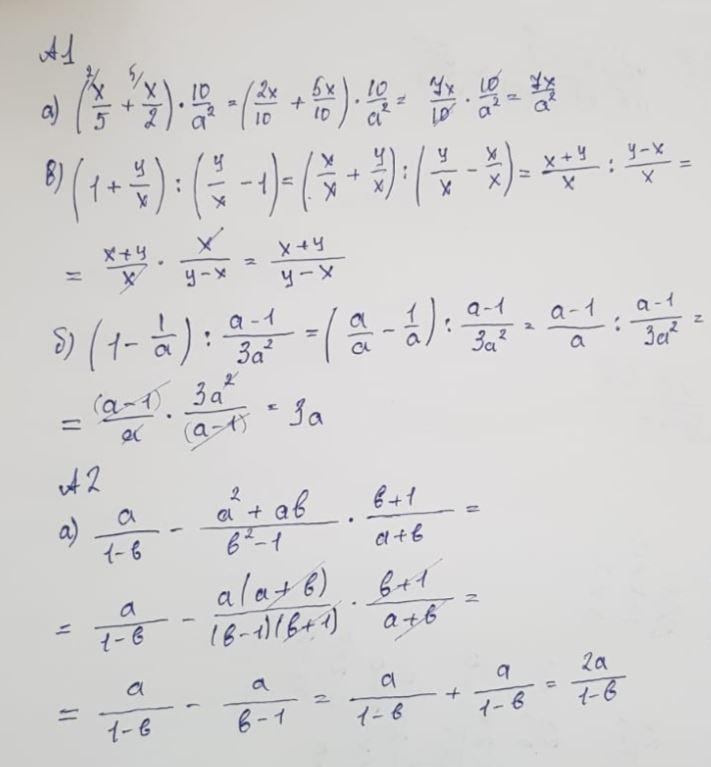 А1
а) (²/x/5 + ⁵/x/2) · 10/a² = (2x/10 + 5x/10) · 10/a² = 7x/10 · 10/a² = 7x/a²
в) (1 + y/x) : (y/x - 1) = (x/x + y/x) : (y/x - x/x) = x+y/x : y-x/x =
= x+y/x · x/y-x = x+y/y-x
б) (1 - 1/a) : a-1/3a² = (a/a - 1/a) : a-1/3a² = a-1/a : a-1/3a² =
= (a-1)/a · 3a²/(a-1) = 3a
А2
а) a/1-в - a²+aв/в²-1 · в+1/a+в =
= a/1-в - a(a+в)/(в-1)(в+1) · в+1/a+в =
= a/1-в - a/в-1 = a/1-в + a/1-в = 2a/1-в